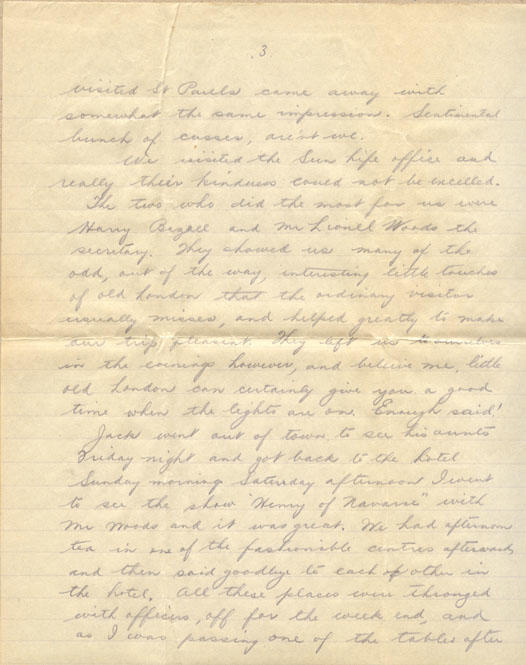 3
visited St Pauls came away with
somewhat the same impression. Sentimental
bunch of cusses, are'nt we.
We visited the Sun Life office and
really their kindness could not be excelled.
The two who did the most for us were
Harry Bezzell and Mr Lionel Woods the
secretary. They showed us many of the
odd, out of the way, interesting little touches
of old London that the ordinary visitor
usually misses, and helped greatly to make
our trip pleasant. They left us to ourselves
in the evenings however, and believe me, little
old London can certainly give you a good
time when the lights are on. Enough said!
Jack went out of town to see his aunts
Friday night and got back to the hotel
Sunday morning. Saturday afternoon I went
to see the show "Henry of Navarre" with
Mr Woods and it was great. We had afternoon
tea in one of the fashionable centres afterwards
and then said goodbye to each other in
the hotel. All these places were thronged
with officers, off for the week end, and
as I was passing one of the tables after